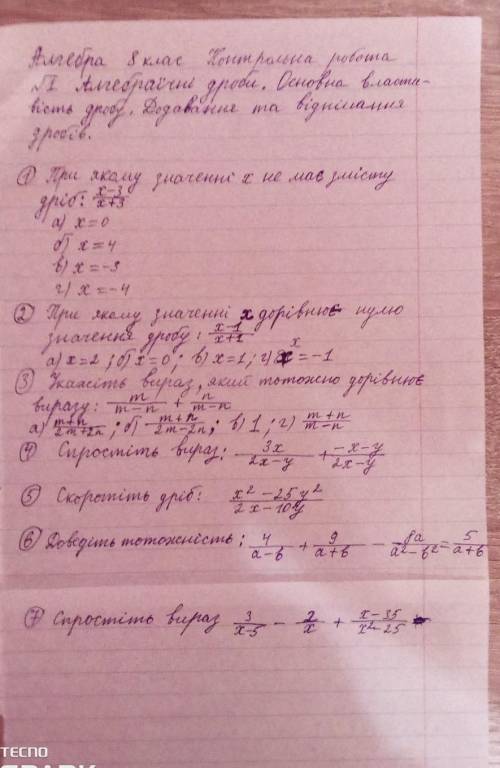 Алгебра 8 клас Контрольна робота
№1 Алгебраїчні дроби. Основна власти-
вість дробу. Додавання та віднімання
дробів.
① При якому значенні х не має змісту
дріб: (x-3)/(x+3)
а) x=0
б) x=4
в) x=-3
г) x=-4
② При якому значенні х дорівнює нулю
значення дробу: (x-1)/(x+1)
а) x=2; б) x=0; в) x=1; г) x=-1
③ Укажіть вираз, який тотожно дорівнює
виразу: m/(m-n) + n/(m-n)
а) (m+n)/(2m+2n); б) (m+n)/(2m-2n); в) 1; г) (m+n)/(m-n)
④ Спростіть вираз: 3x/(2x-y) + (-x-y)/(2x-y)
⑤ Скоротіть дріб: (x²-25y²)/(2x-10y)
⑥ Доведіть тотожність: 4/(a-b) + 9/(a+b) - 8a/(a²-b²) = 5/(a+b)
⑦ Спростіть вираз 3/(x-5) - 2/x + (x-35)/(x²-25)
TECNO
SPARK